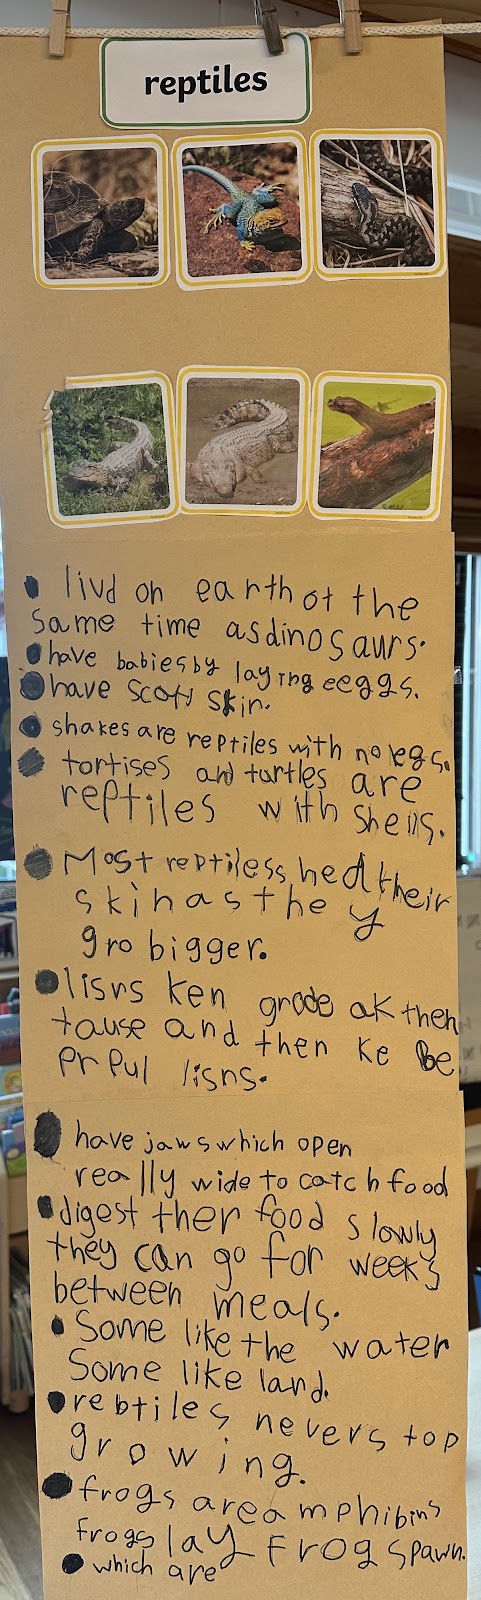 reptiles
• livd on earth at the
same time as dinosaurs.
• have babies by laying eeggs.
• have scoty skin.
• snakes are reptiles with no legs.
• tortises and turtles are
reptiles with shells.
• Most reptiless hed their
skin as the y
gro bigger.
• lisrs ken grode ak then
tause and then ke be
prpul lisns.
• have jaws which open
really wide to catch food
• digest ther food slowly
they can go for weeks
between meals.
• Some like the water
Some like land.
• reptiles never stop
growing.
• frogs are amphibins
frogs lay frogspawn.
• which are